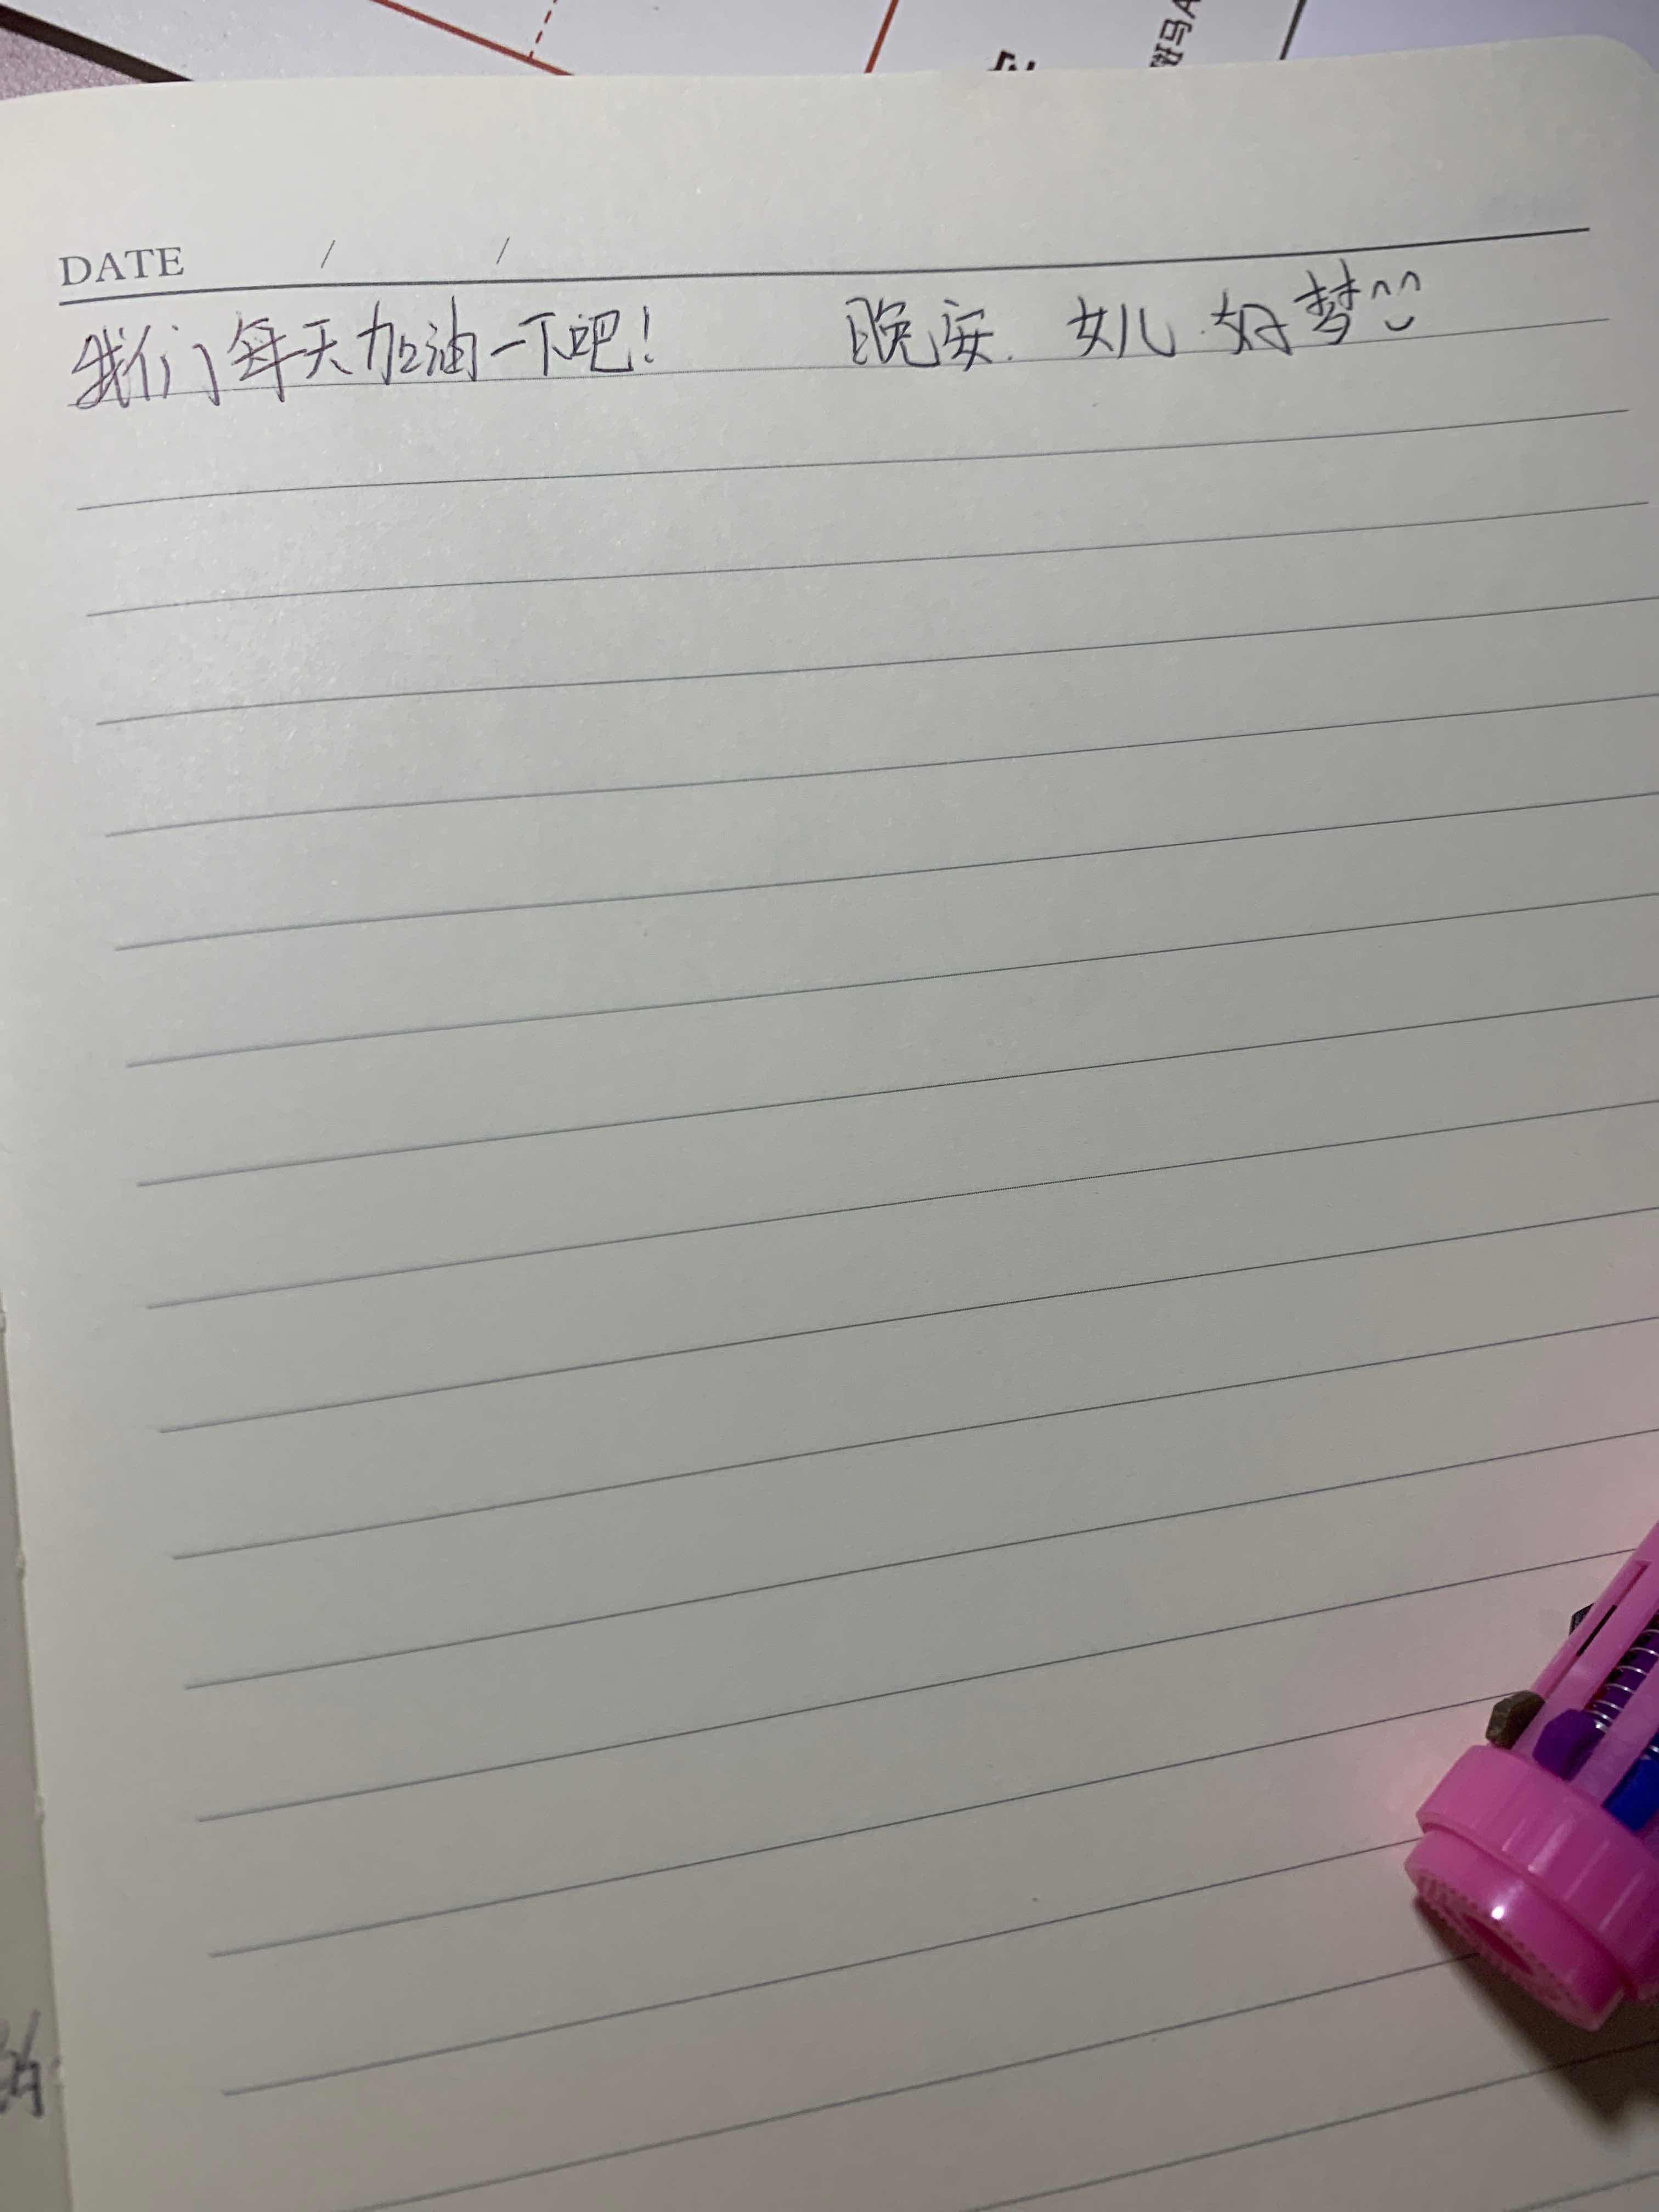 斑马A
DATE / /
我们每天加油一下吧! 晚安. 女儿.好梦^^